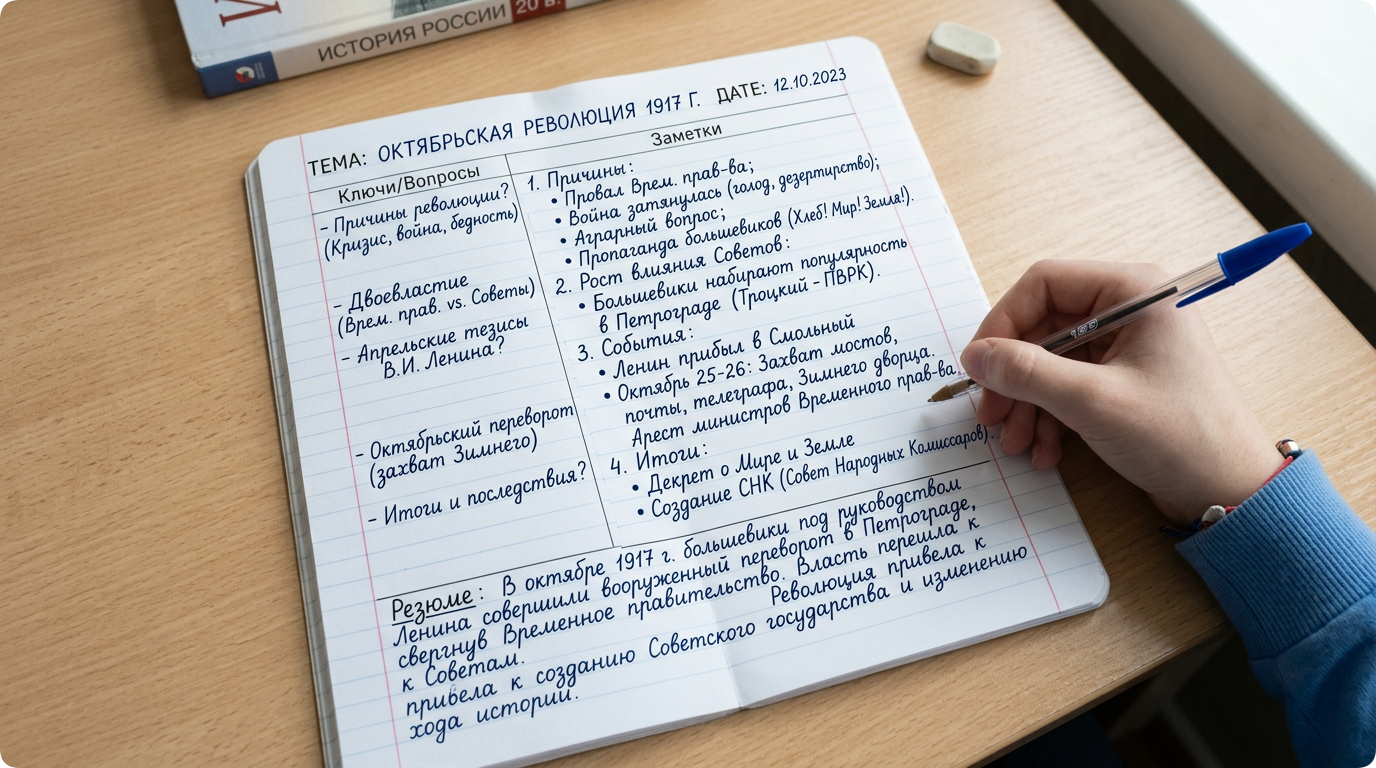 И
ИСТОРИЯ РОССИИ 20 в.
ТЕМА: ОКТЯБРЬСКАЯ РЕВОЛЮЦИЯ 1917 Г. ДАТЕ: 12.10.2023
Ключи/Вопросы
- Причины революции?
(Кризис, война, бедность)
- Двоевластие
(Врем. прав. vs. Советы)
- Апрельские тезисы
В.И. Ленина?
- Октябрьский переворот
(захват Зимнего)
- Итоги и последствия?
Заметки
1. Причины:
• Провал Врем. прав-ва;
• Война затянулась (голод, дезертирство);
• Аграрный вопрос;
• Пропаганда большевиков (Хлеб! Мир! Земля!).
2. Рост влияния Советов:
• Большевики набирают популярность
в Петрограде (Троцкий - ПВРК).
3. События:
• Ленин прибыл в Смольный
• Октябрь 25-26: Захват мостов,
почты, телеграфа, Зимнего дворца.
Арест министров Временного прав-ва.
4. Итоги:
• Декрет о Мире и Земле
• Создание СНК (Совет Народных Комиссаров).
Резюме: В октябре 1917 г. большевики под руководством
Ленина совершили вооруженный переворот в Петрограде,
свергнув Временное правительство. Власть перешла к
к Советам. Революция привела к
привела к созданию Советского государства и изменению
хода истории.